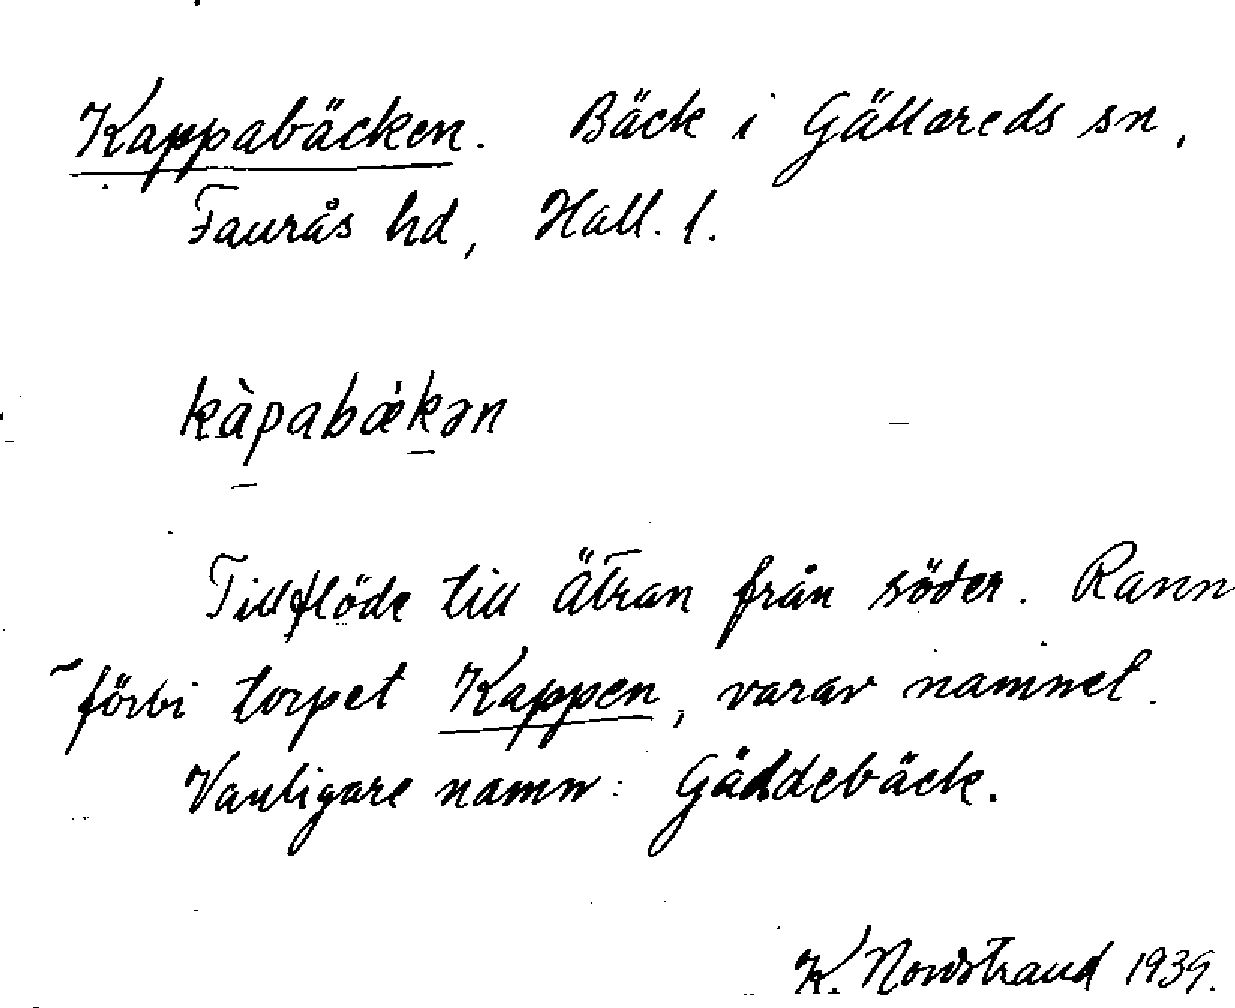 Kappabäcken. Bäck i Gällareds sn,
Faurås hd, Hall. l.
kàpabæ̀kən
Tillflöde till Ätran från söder. Rann
förbi torpet Kappen, varav namnet.
Vanligare namn: Gäddebäck.
K. Nordstrand 1939.